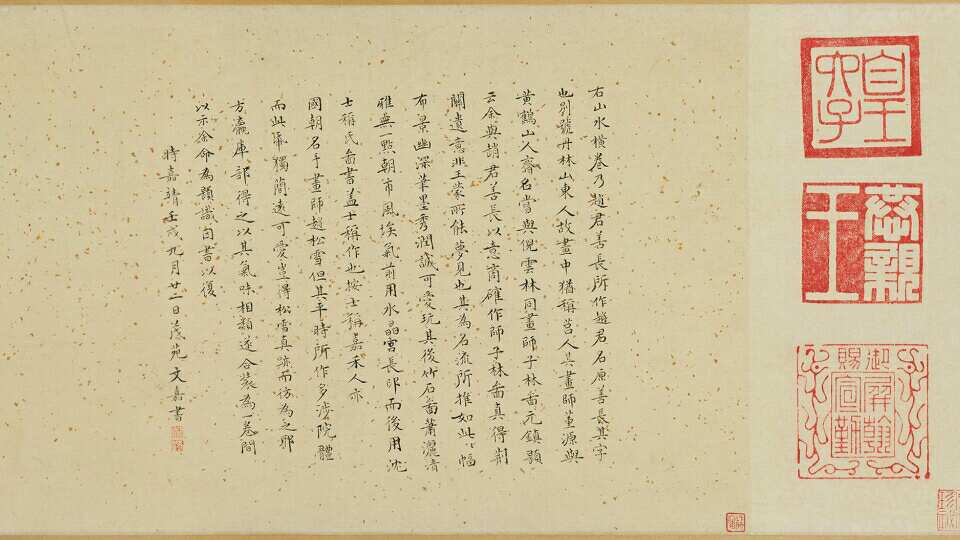 右山水橫卷乃趙君善長所作趙君名原善長其字
也別號丹林山東人故畫中猶稱莒人其畫師董源與
黃鶴山人齊名當與倪雲林同畫師子林圖元鎮題
云余與趙君善長以意商確作師子林圖真得荊
關遺意非王蒙所能夢見也其為名流所推如此此幅
布景幽深筆墨秀潤誠可愛玩其後竹石圖蕭灑清
雅無一點朝市風埃氣前用水晶宮長印而後用沈
士稱氏圖書蓋士稱作也按士稱嘉禾人亦
國朝名手畫師趙松雪但其平時所作多涉院體
而此筆獨簡遠可愛豈得松雪真跡而仿為之邪
方瀛庫部得之以其氣味相類遂合裝為一卷間
以示余命為題識因書以復
時嘉靖壬戌九月廿一日茂苑文嘉書
皇六子
恭親王
御賜屏翰宣勤